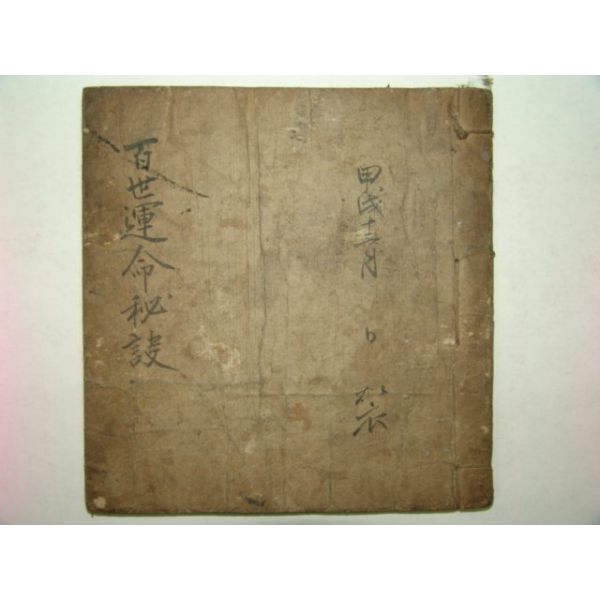 甲戌十二月 日
百世運命秘訣